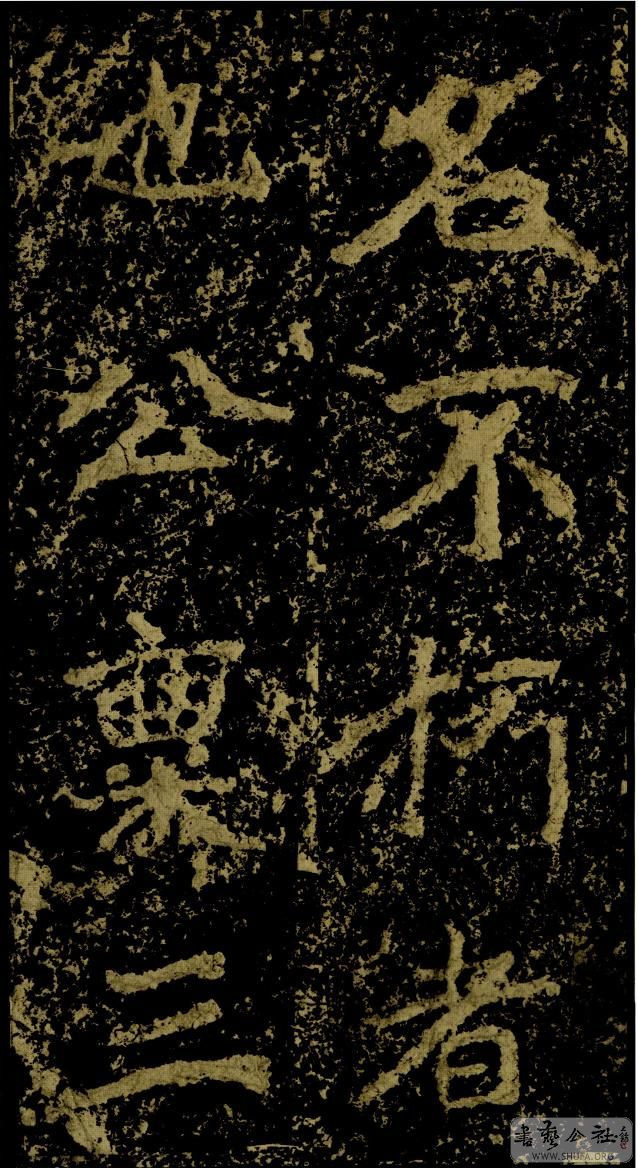 名不朽者
也公稟三
書藝公社
WWW.SHUFA.ORG